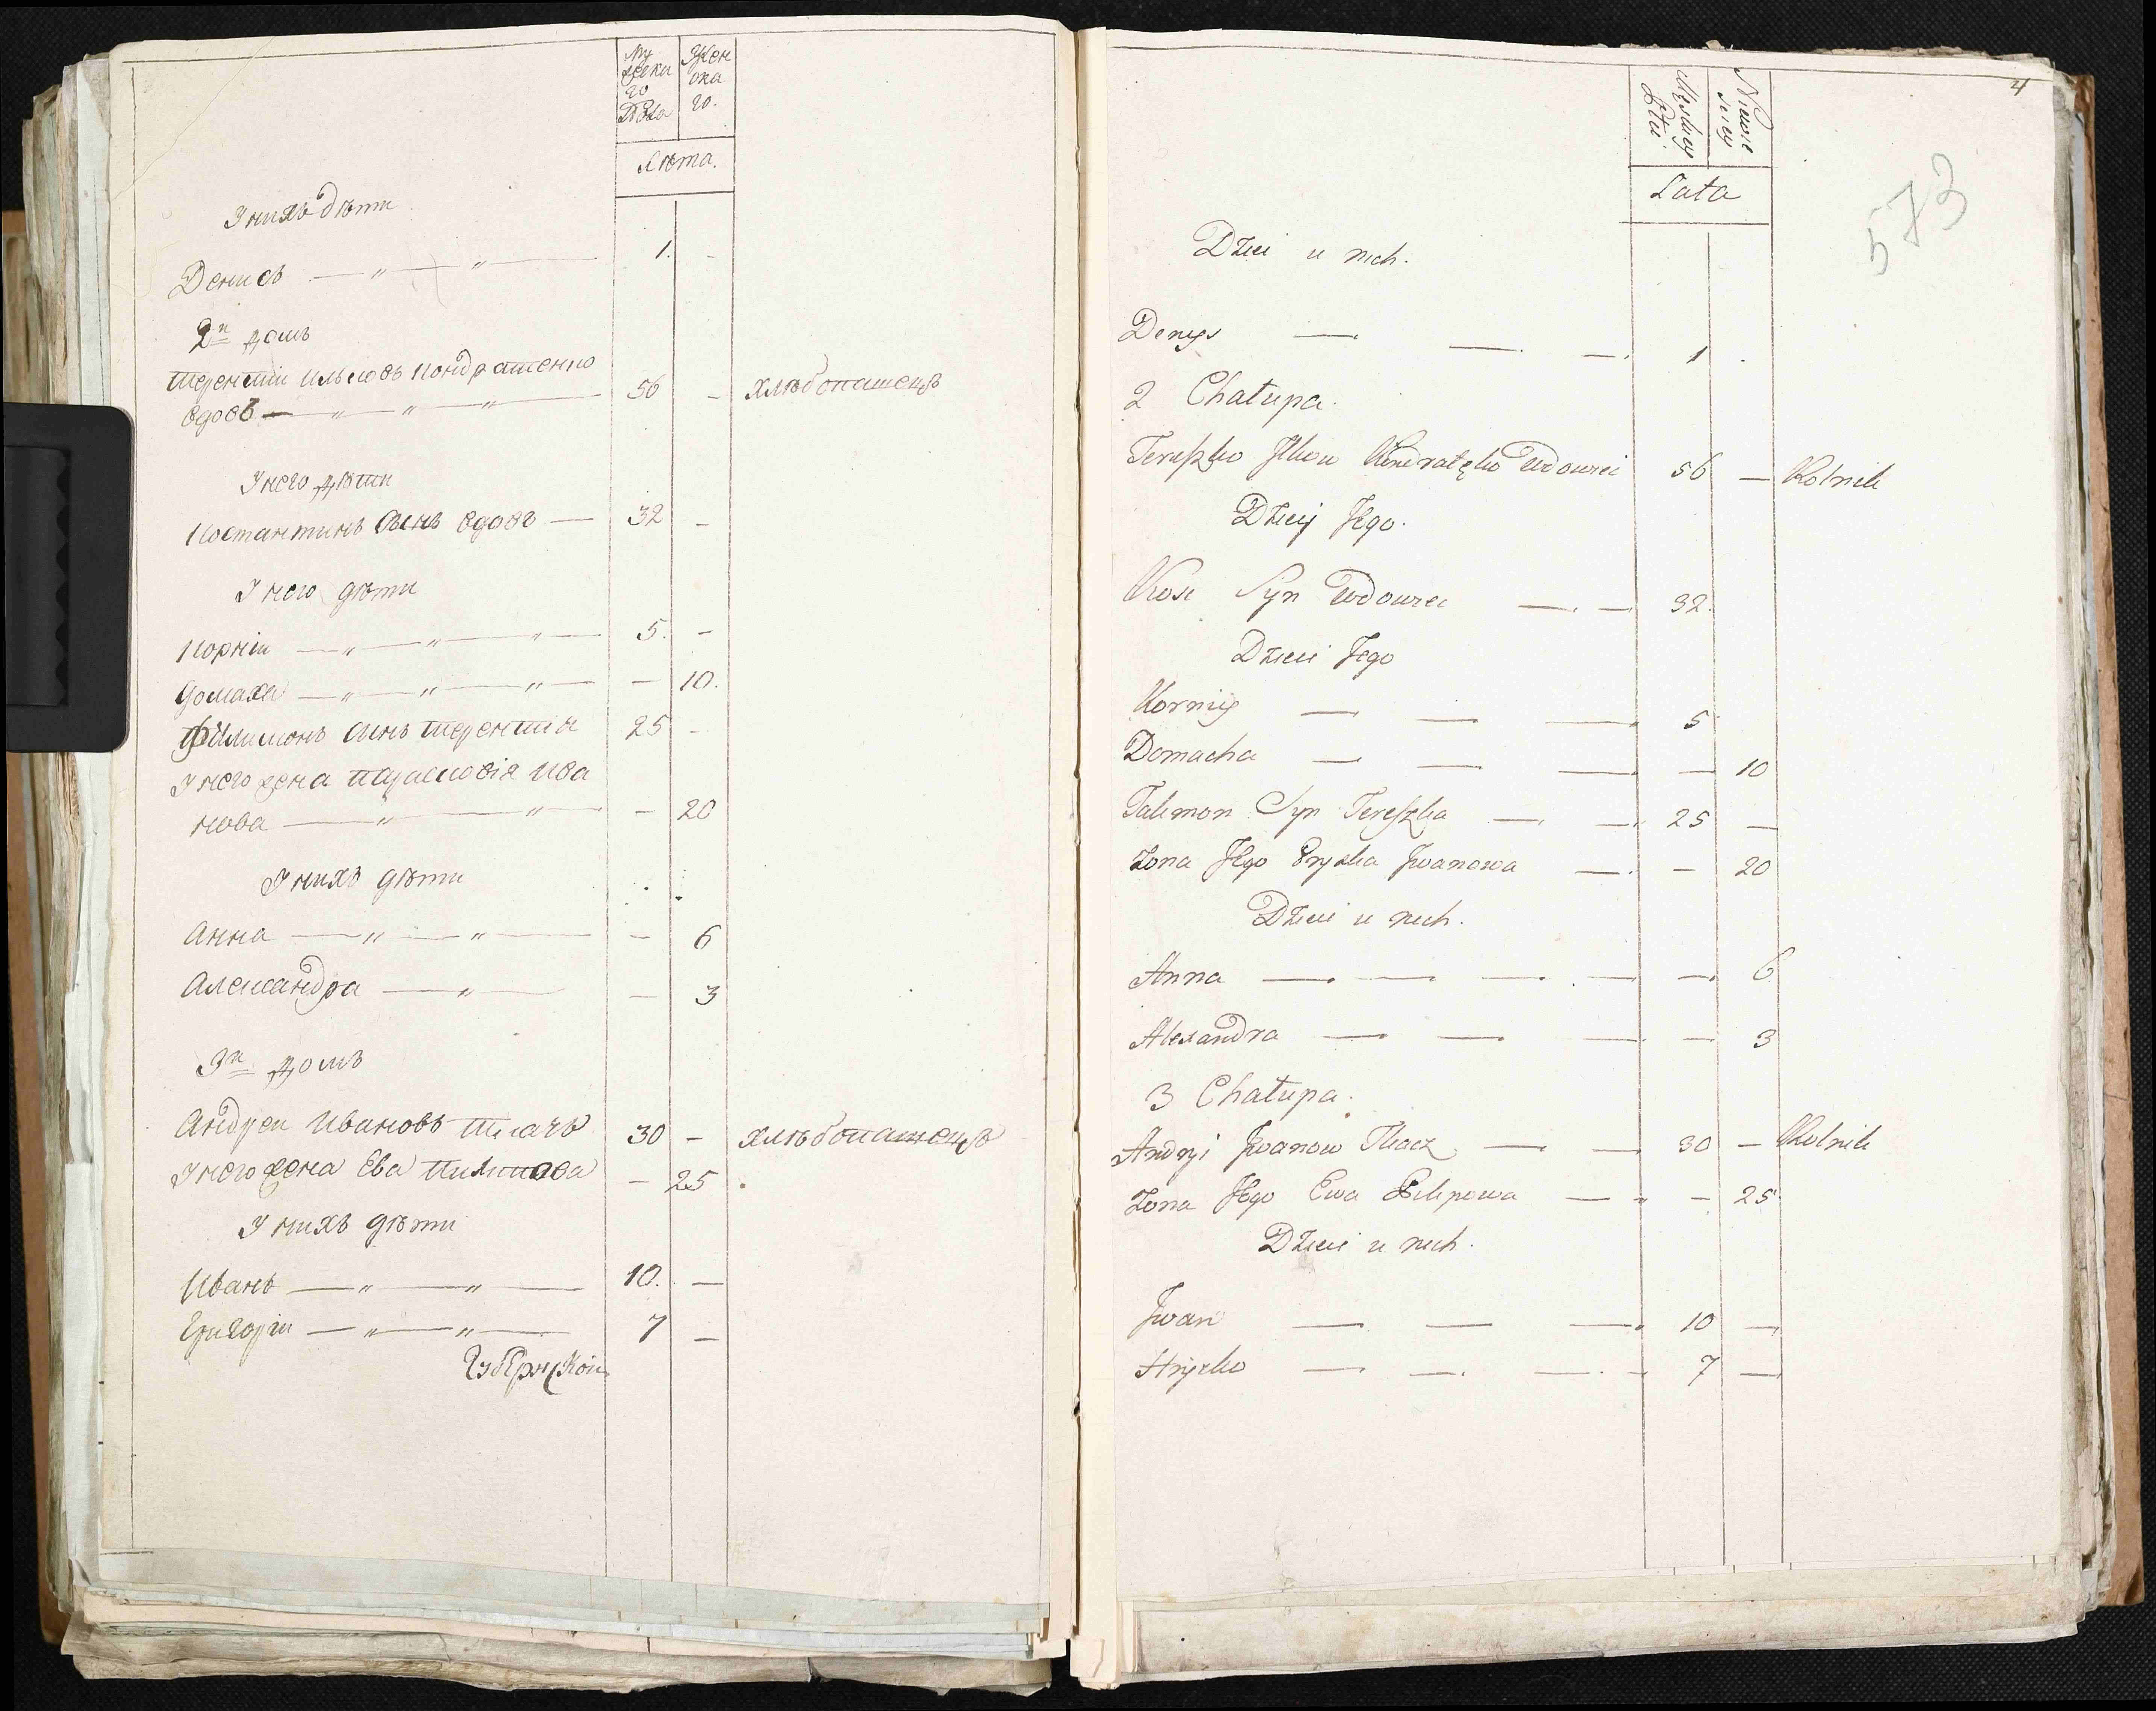 Му
жеска
го
Пола
Жен
ска
го.
Лѣта.
У нихъ дѣти
Денисъ — „ — „ — 1. -
2й домъ
Терентіи Ильковъ Кондратенко
вдовъ — „ — „ — „ — 56 - хлѣбопашецъ
У него дѣти
Костантинъ Сынъ вдовъ — 32 -
У него дѣти
Корніи — „ — „ — „ — 5. -
Домаха — „ — „ — „ — - 10.
Филимонъ Сынъ Терентіи 25 -
У него жена Парасковія Ива
нова — „ — „ — - 20
У нихъ дѣти
Анна — „ — „ — - 6
Александра — „ — - 3
3й домъ
Андреи Ивановъ Ткачъ 30 - хлѣбопашецъ
У него жена Ева Пилипова - 25
У нихъ дѣти
Иванъ — „ — „ — 10. —
Григоріи — „ — „ — 7 —
Губернской
4
573
Męskiey
Płci
Niewie
sciey
Lata
Dzieci u nich.
Denys — — — 1
2 Chałupa.
Tereszko Jlkow Kondratęko Wdowiec 56 — Rolnik
Dzieci Jego.
Kost Syn Wdowiec — — 32.
Dzieci Jego
Korniy — — — 5
Domacha — — — — 10
Talimon Syn Tereszka — — 25 —
Zona Jego Pryska Jwanowa — — 20
Dzieci u nich.
Anna — — — — — 6
Alexandra — — — — 3
3 Chałupa.
Andryi Jwanow Tkacz — — 30 — Rolnik
Zona Jego Ewa Pilipowa — — 25
Dzieci u nich.
Jwan — — — 10 —
Hryszko — — — 7 —